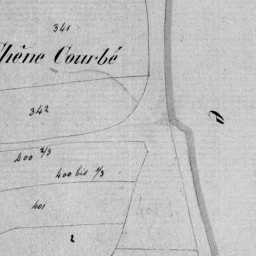 341
Chêne Courbé
342
400 2/3
400 bis 1/3
401